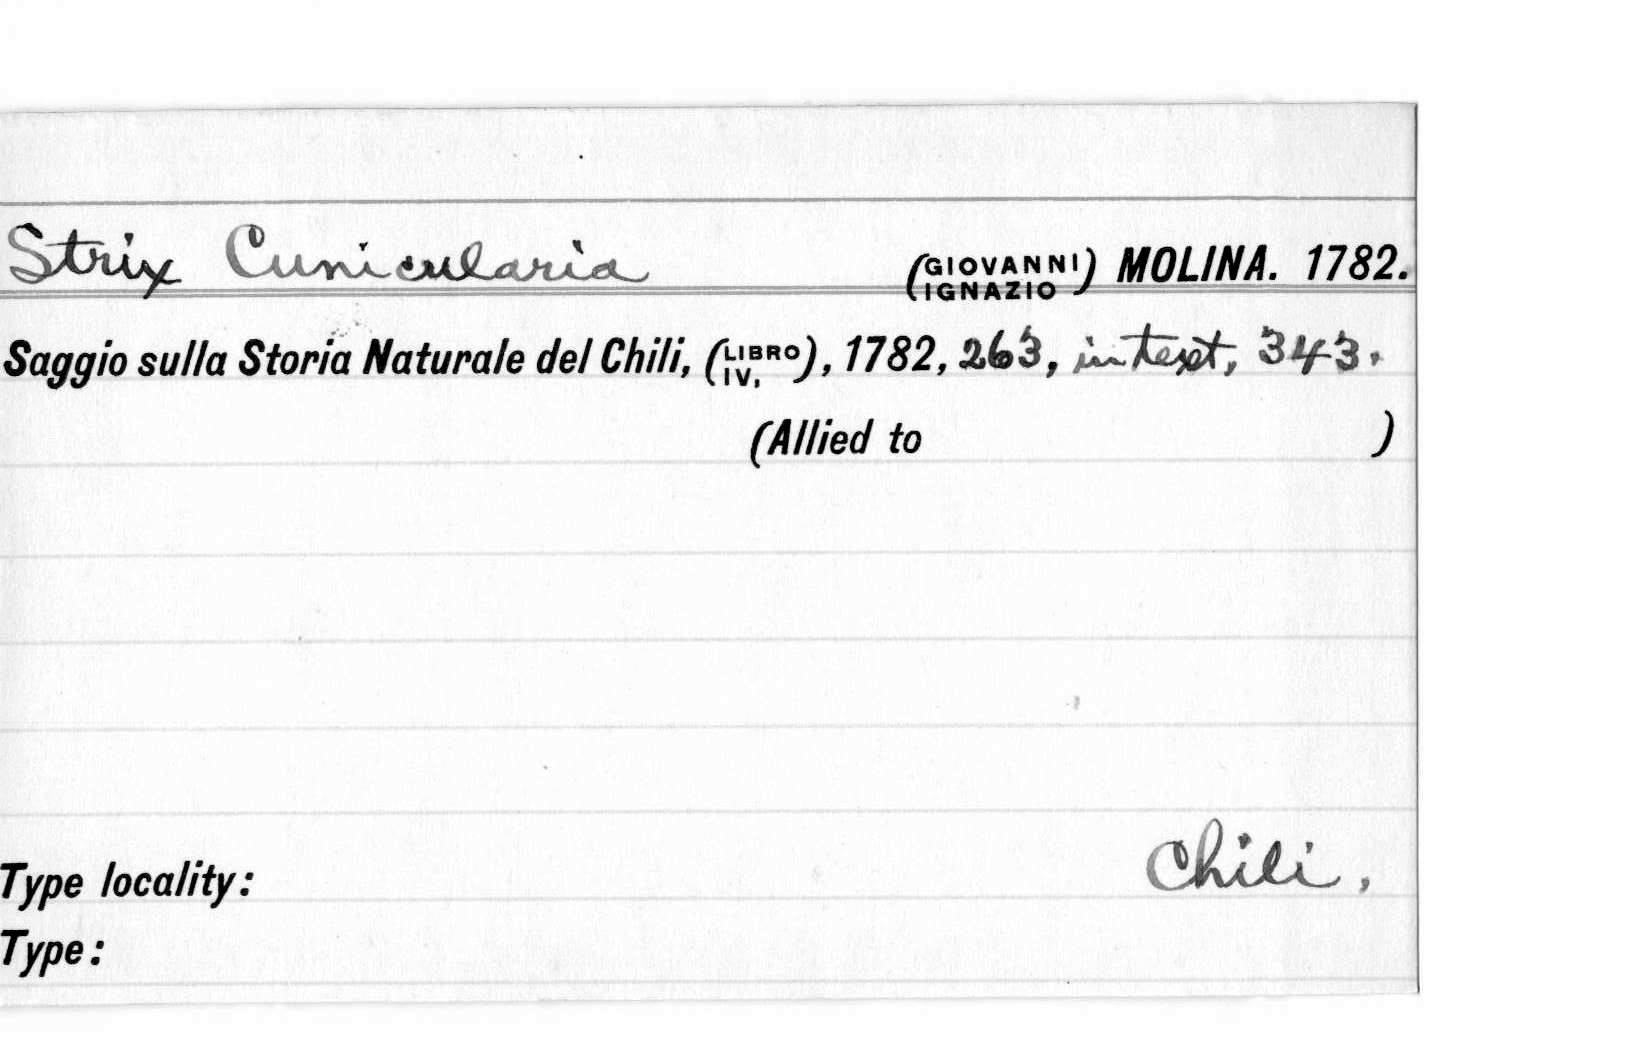 Strix Cunicularia (GIOVANNI IGNAZIO) MOLINA. 1782.
Saggio sulla Storia Naturale del Chili, (LIBRO IV,), 1782, 263, in text, 343.
(Allied to )
Type locality: Chili.
Type: